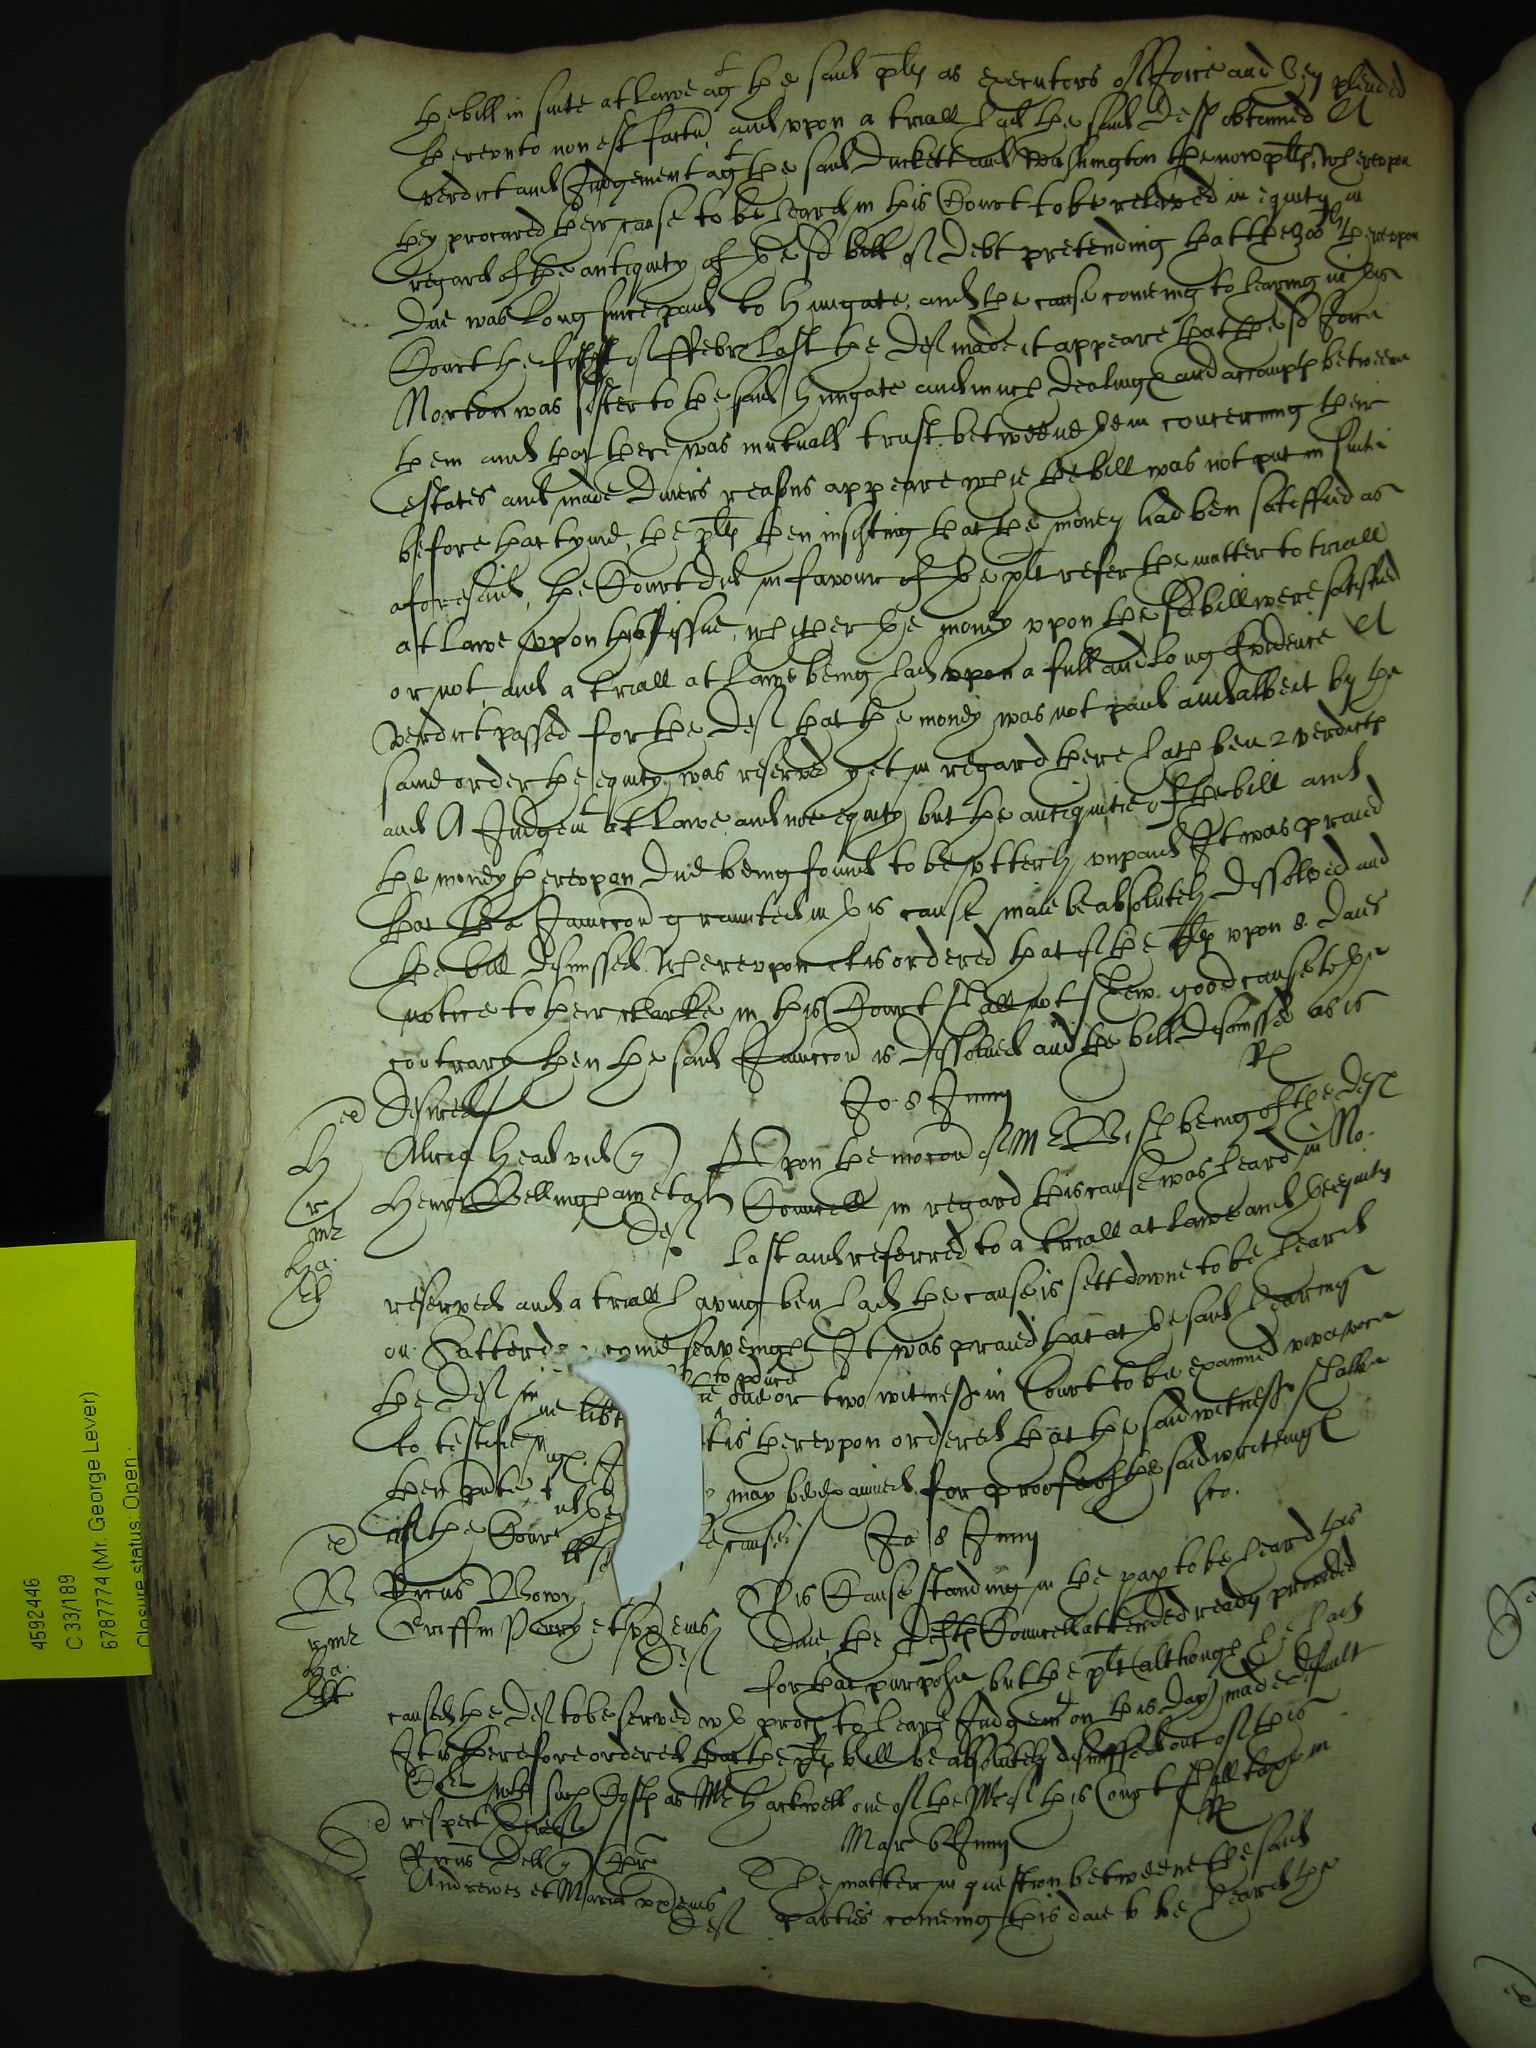 the bill in suite at lawe agt the said plts as executors of Joice and they pleaded
therevnto non est factu and vpon a triall had the said Deft obtained A
verdict and Judgement agt the said Duckett and Washington the now plts, Wherevpon
they procured their cause to be heard in this Court to be releived in equity in
regard of the antiquity of the sd bill of Debt pretending that the 300li therevpon
due was long since paid to Hungate, and the cause comeing to hearing in this
Court the first of ffebr last the Deft made it appeare that the sd Jorn
Norton was sister to the said Hungate and much dealings and accompts betweene
them and that there was mutuall trust betweene them concerning their
estates and made diuers reasons appeare why the bill was not put in suite
before that tyme, the plts then insisting that the money had ben satisfied as
aforesaid, the Court did in favour of the plt refer the matter to triall
at lawe vpon this issue, whether the money vpon the sd bill were satisfied
or not, and a triall at lawe being had vpon a full and long Evidence A
Verdict passed for the Deft that the money was not paid and albeit by the
same order the equity was reserved yet in regard there hath ben 2 verdicts
and A Judgemt at lawe and noe equity but the antiquitie of the bill and
the money therevpon due being found to be vtterly vnpaid It was praied
that the Iniunccon graunted in this cause maie be absolutely dissolved and
the bill dismissed. Wherevpon it is ordered that if the plts vpon 8. daies
notice to their clarke in this Court shall not shew good cause to the
contrary then the said Iniunccon is dissolued and the bill dismissed as is
desired
Jo: 8 Junij
Alicia Head vid
Henr Bellingham et al
Def
Vpon the mocon of Mr being of the Defts
Councell in regard this cause was heard in No.
last and referred to a triall at lawe and the equity
reserved and a triall having ben had the cause is sett downe to be heard
on Satterday come seavenight It was praied that at the said hearing
the Deft to pduce
one or two witnesses in Court to be examined viva voce
to testifie It is therevpon ordered that the said witnesses shalbe
then may be examined for proofe of the said writings
at the Court the cause
Jo 8 Junij
Ricus Bowy
Griffin Perry et vx eius
Def
This Cause standing in the pap to be heard this
daie, the Defts Councell attended ready provided
for that purpose but the plt (although he had
caused the Deft to be served wth proces to heare Judgemt on this day) made default
It is therefore ordered that the plts bill be absolutely dismissed out of this
Court wth such Costs as Mr Hackwell one of the Mrs of this Court shall taxe in
respect hereof
Mar 6 Junij
Ricus Dell
Andrewes et Maria vx eius
Def
The matter in question betweene the said
parties comeing this daie to be heard the
4592446
C 33/189
6787774 (Mr. George Lever)
Closure status: Open